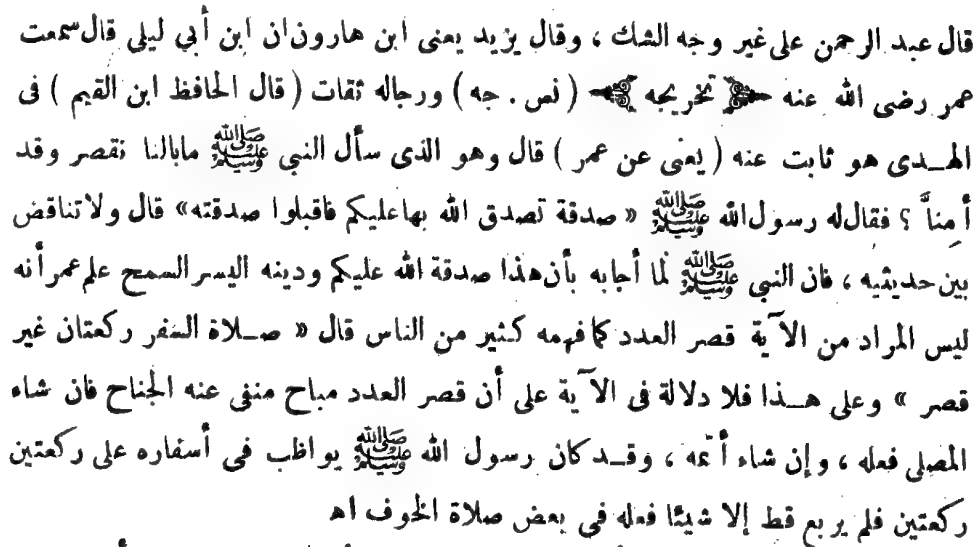 قال عبد الرحمن على غير وجه الشك ، وقال يزيد يعنى ابن هارون ان ابن أبي ليلى قال سمعت
عمر رضى الله عنه ﴿ تخريجه ﴾ ( نس . جه ) ورجاله ثقات ( قال الحافظ ابن القيم ) فى
الهـدى هو ثابت عنه ( يعنى عن عمر ) قال وهو الذى سأل النبي ﷺ مابالنا نقصر وقد
أمِنَّا ؟ فقال له رسول الله ﷺ « صدقة تصدق الله بها عليكم فاقبلوا صدقته» قال ولا تناقض
بين حديثيه ، فان النبي ﷺ لما أجابه بأن هذا صدقة الله عليكم ودينه اليسر السمح علم عمر أنه
ليس المراد من الآية قصر العدد كما فهمه كثير من الناس قال « صـلاة السفر ركعتان غير
قصر » وعلى هـذا فلا دلالة فى الآية على أن قصر العدد مباح منفى عنه الجناح فان شاء
المصلى فعله ، وإن شاء أتمه ، وقـد كان رسول الله ﷺ يواظب فى أسفاره على ركعتين
ركعتين فلم يربع قط إلا شيئا فعله فى بعض صلاة الخوف اه